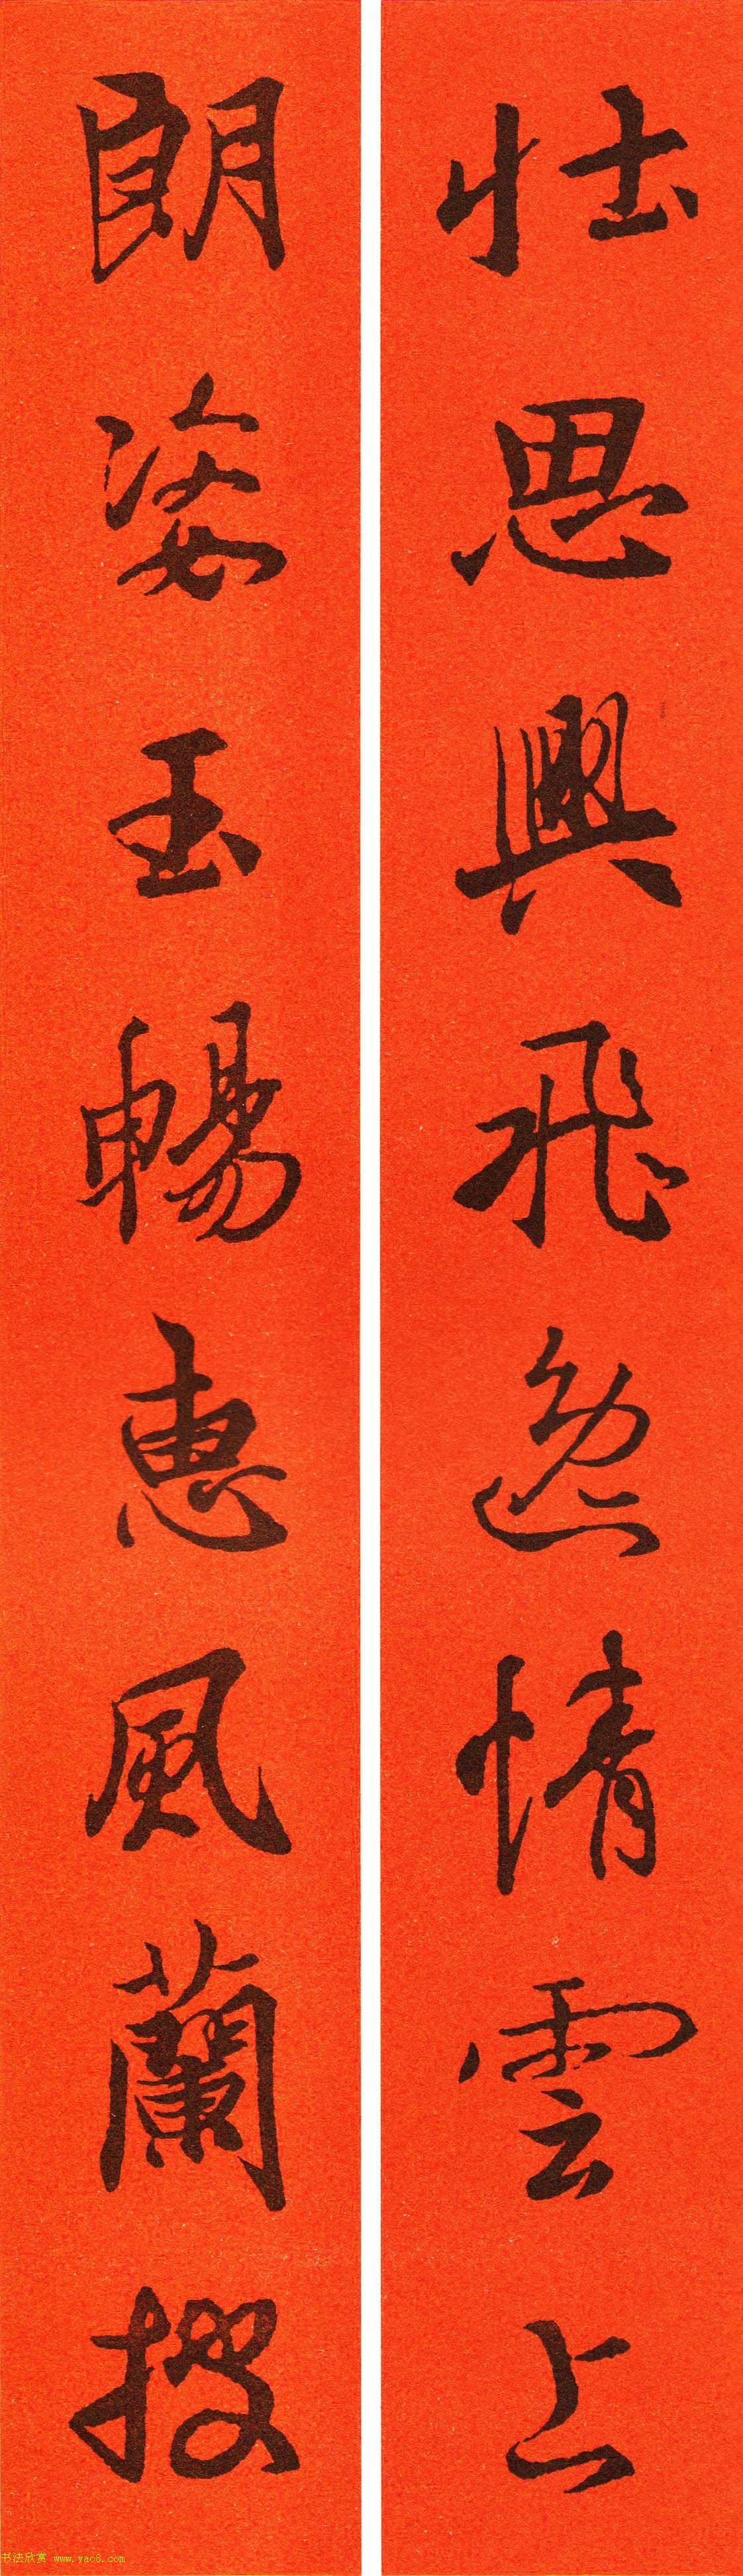 壮思興飛逸情雲上
朗姿玉暢惠風蘭
书法欣赏 www.yac8.com